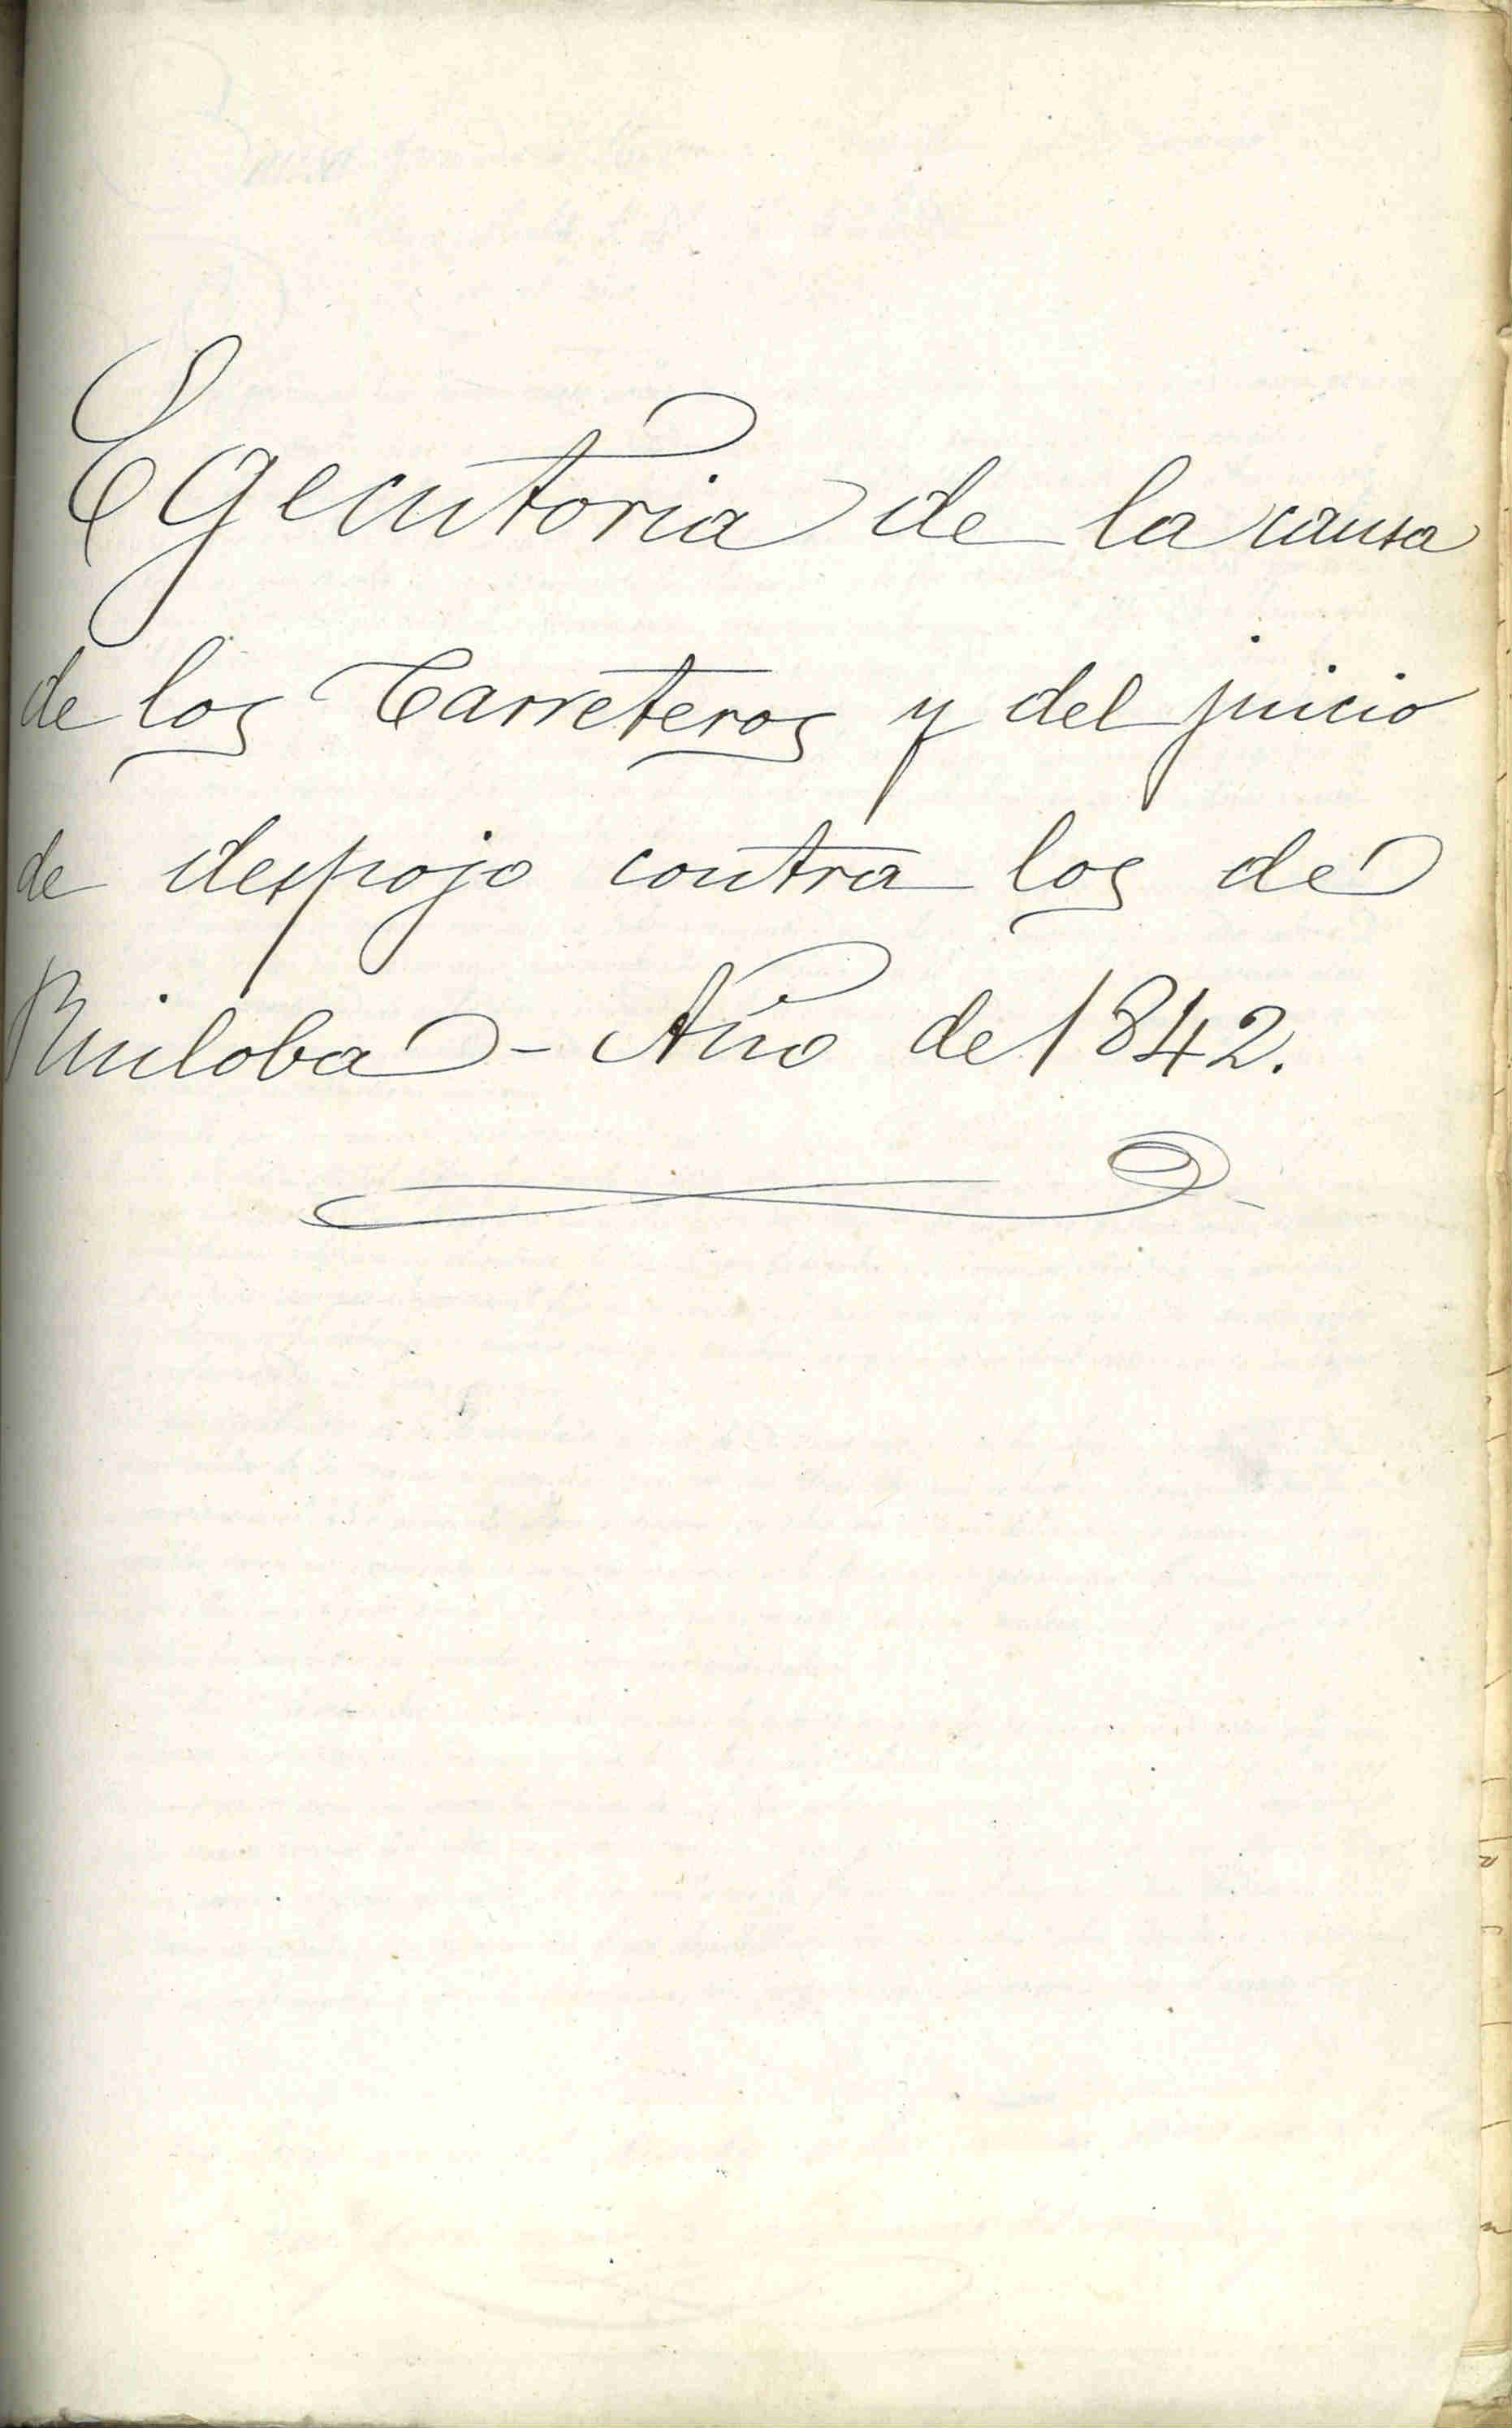 Egecutoria de la causa
de los Carreteros y del juicio
de despojo contra los de
Ruiloba - Año de 1842.